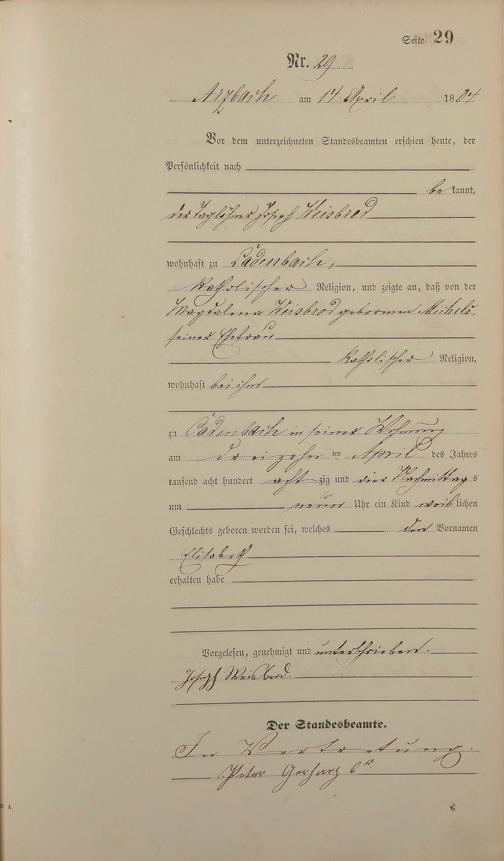 Seite 29
Nr. 29
Arzbach am 14 April 1884
Vor dem unterzeichneten Standesbeamten erschien heute, der
Persönlichkeit nach
be kannt,
der Taglöhner Joseph Weisbrod
wohnhaft zu Cadenbach,
katholischer Religion, und zeigte an, daß von der
Magdalena Weisbrod geborenen Michels,
seiner Ehefrau
katholischer Religion,
wohnhaft bei ihm
zu Cadenbach in seiner Wohnung
am dreizehn ten April des Jahres
tausend acht hundert acht zig und vier Nachmittag s
um neun Uhr ein Kind weiblichen
Geschlechts geboren worden sei, welches den Vornamen
Elisabeth
erhalten habe
Vorgelesen, genehmigt und unterschrieben.
Joseph Weisbrod.
Der Standesbeamte.
In Vertretung.
Peter Gerharz 6ter